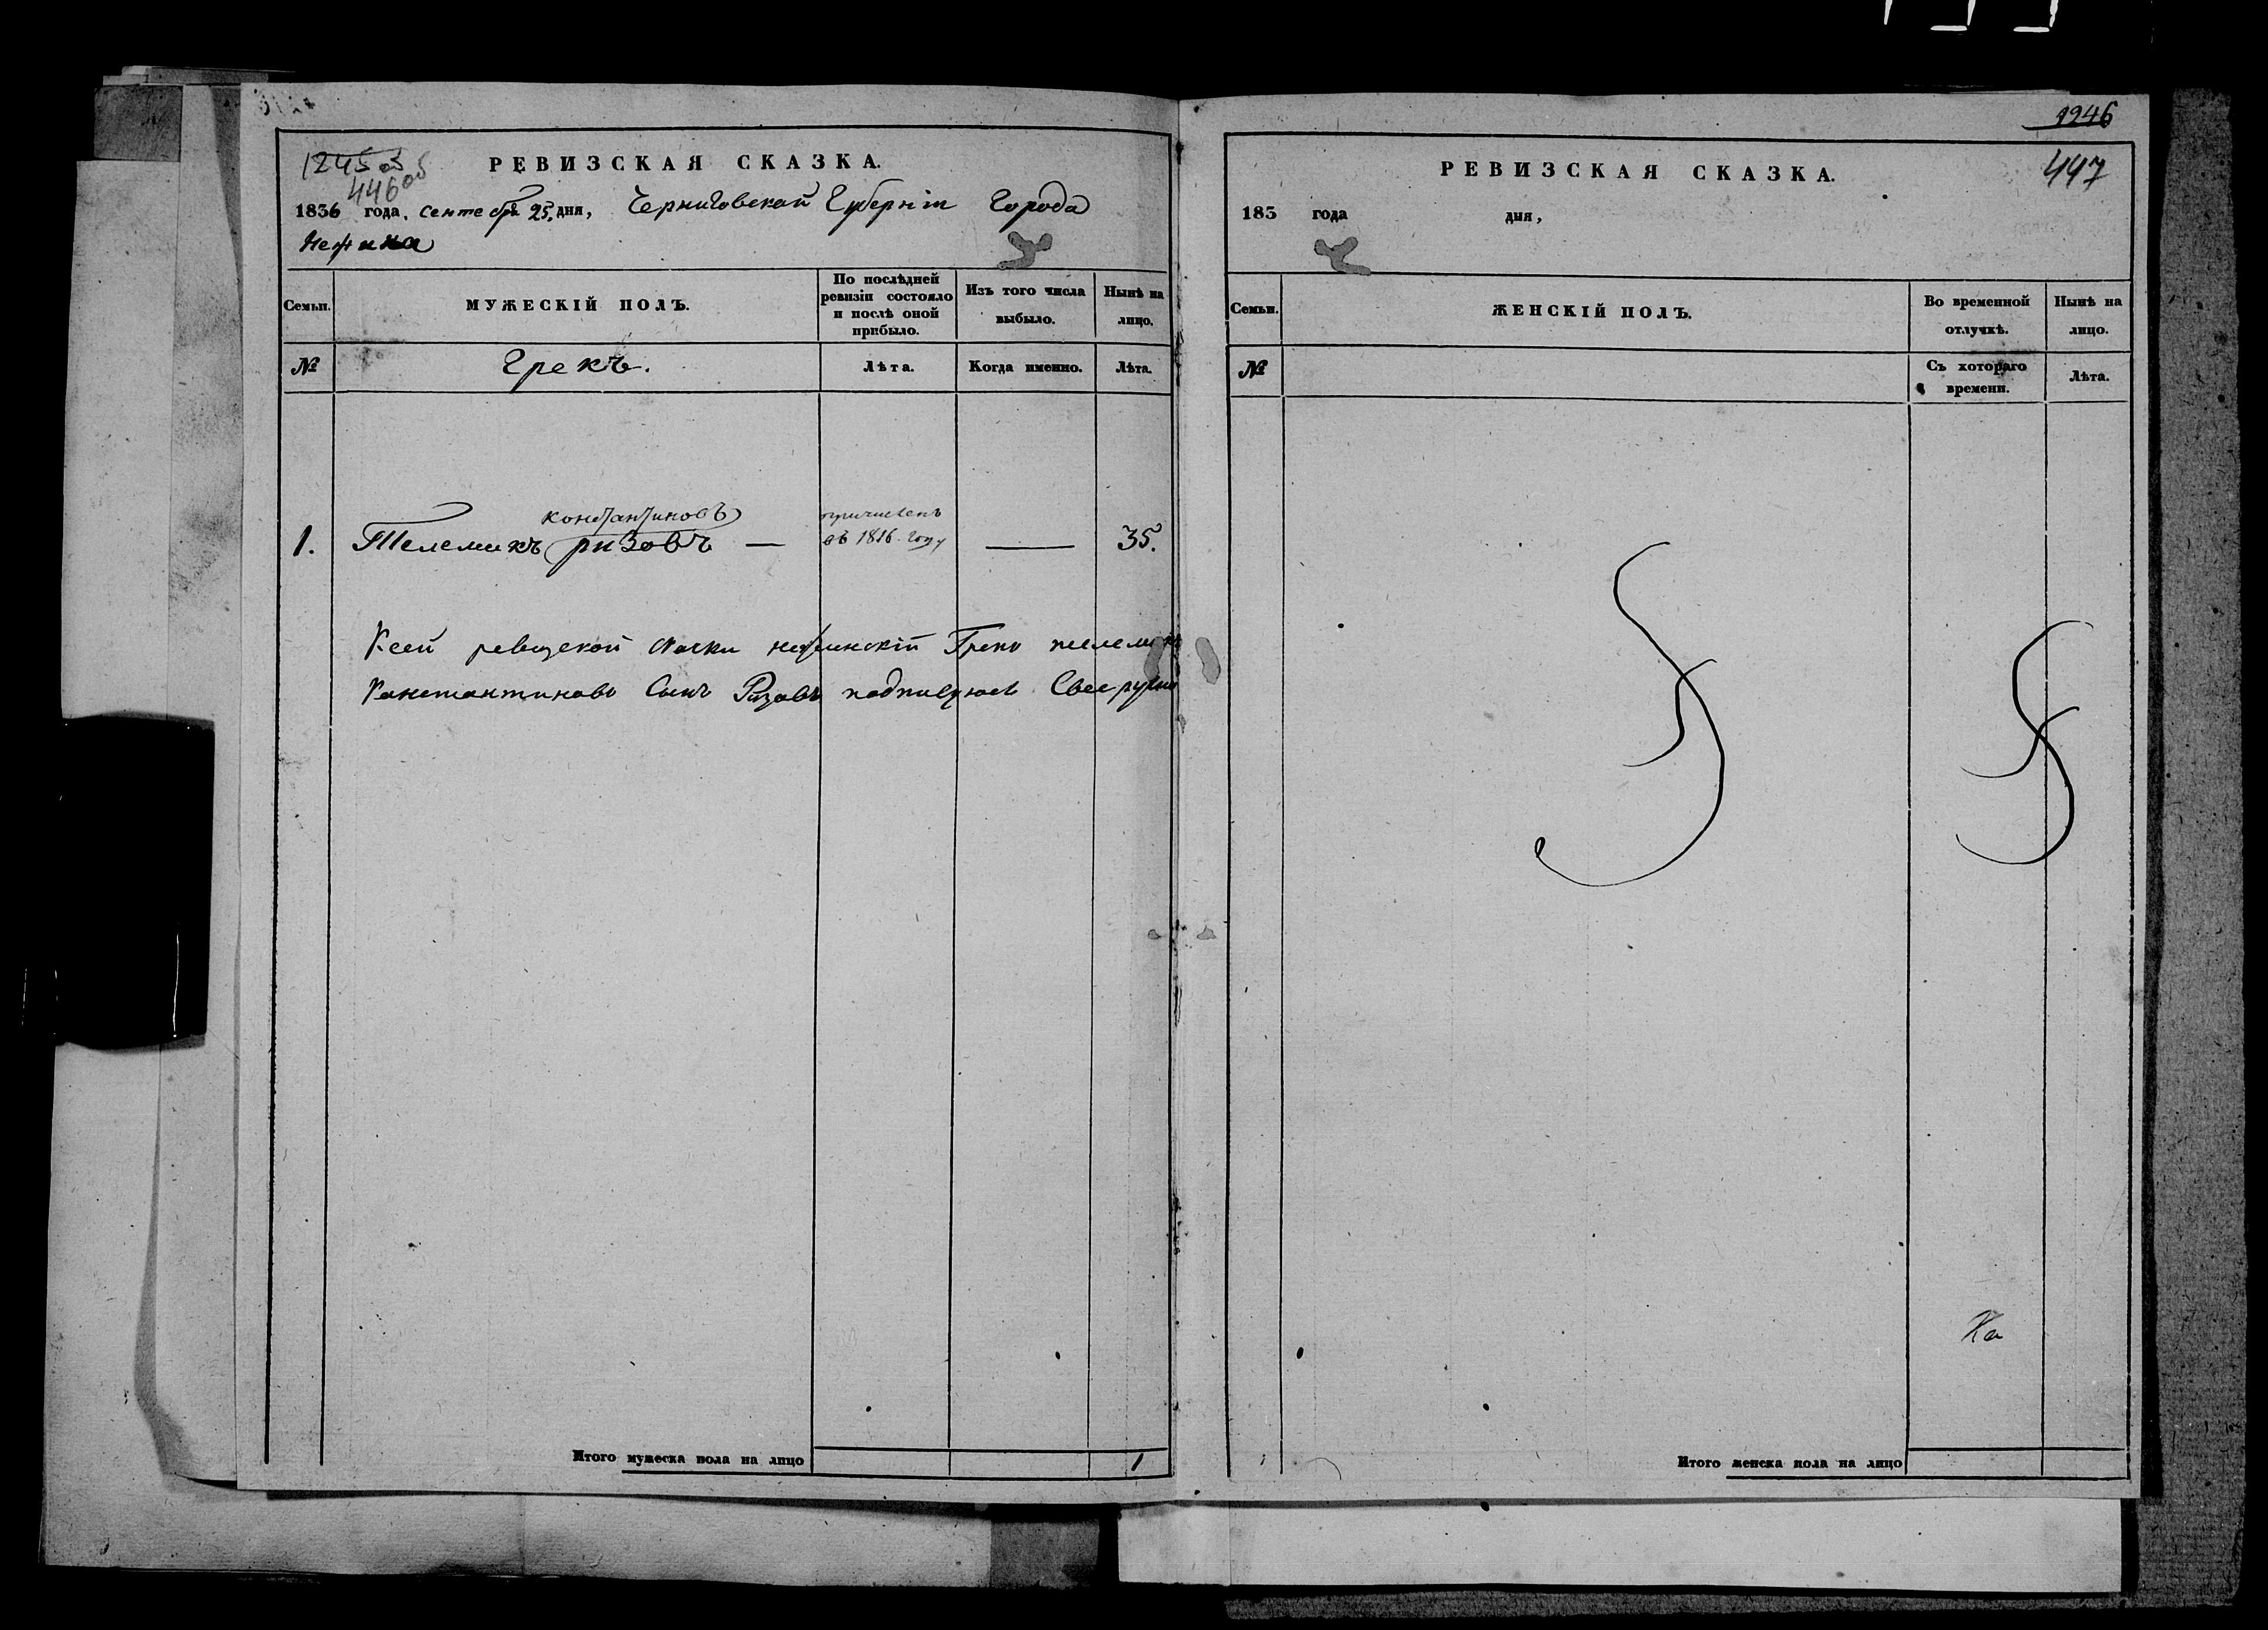 1245 об
446 об
РЕВИЗСКАЯ СКАЗКА.
1836 года, сентебря 25. дня, Черниговской Губерніи Города
Нежина
Семьи.
МУЖЕСКІЙ ПОЛЪ.
По послѣдней ревизіи состояло и послѣ оной прибыло.
Изъ того числа выбыло.
Нынѣ на лицо.
№
Грекъ.
Лѣта.
Когда именно.
Лѣта.
константиновъ
1. Телемахъ ризовъ — причисленъ въ 1816 году — 35.
К сей ревизской скаски нежинскій Грекъ телемахъ
Канстантиновъ Сынъ Ризовъ подписуюсь
Итого мужеска пола на лицо 1
1246
447
РЕВИЗСКАЯ СКАЗКА.
183 года дня,
Семьи.
ЖЕНСКІЙ ПОЛЪ.
Во временной отлучкѣ.
Нынѣ на лицо.
№
Съ котораго времени.
Лѣта.
Итого женска пола на лицо